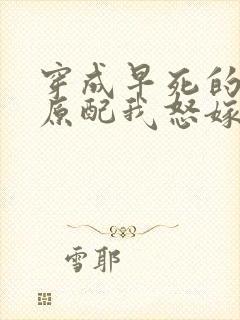 穿成早死的
原配我怒嫁
雪耶